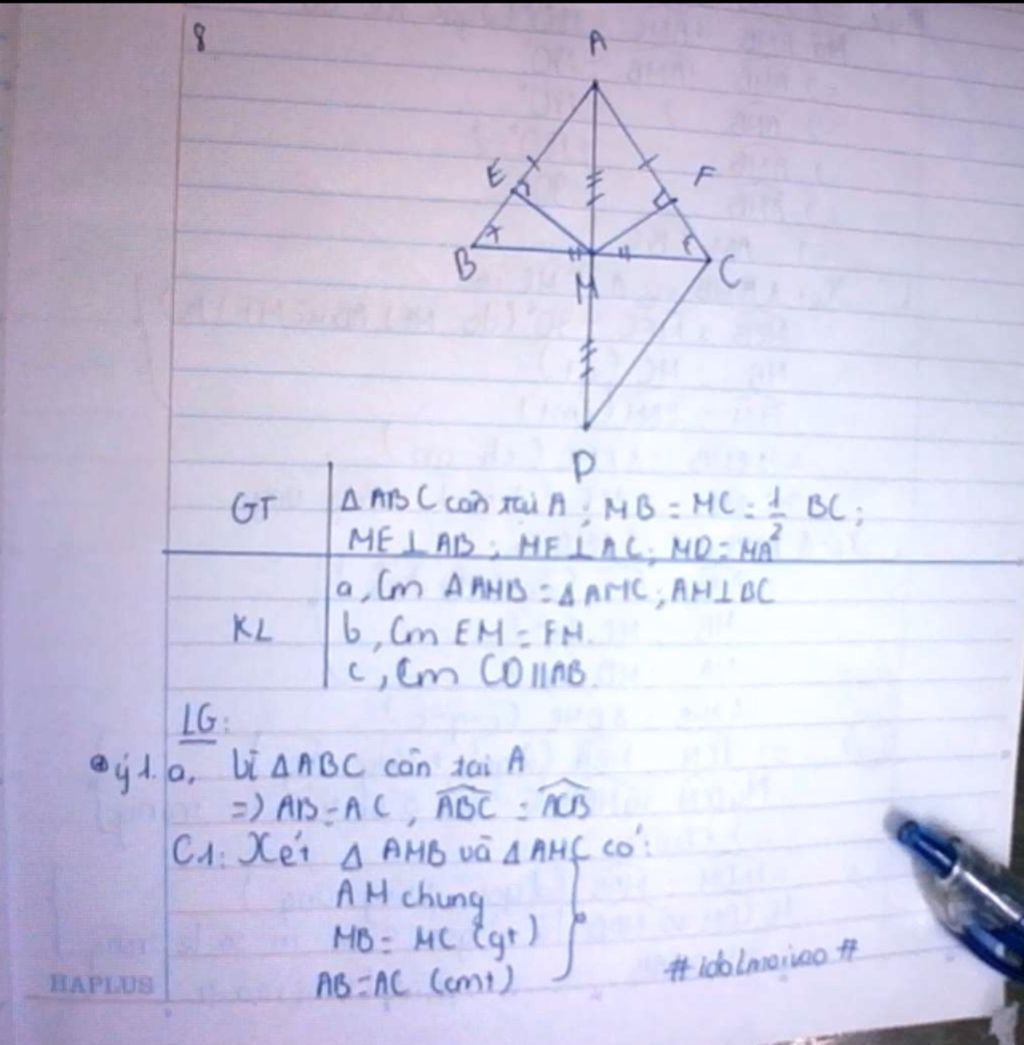 8
A
E
F
B
M
C
D
GT
ΔABC cân tại A ; MB = MC = 1/2 BC ;
ME ⊥ AB ; MF ⊥ AC ; MD = MA
KL
a, Cm ΔAMB = ΔAMC ; AM ⊥ BC
b, Cm EM = FM.
c, Cm CD // AB.
LG:
ý 1. a, Vì ΔABC cân tại A
=) AB = AC, \widehat{ABC} = \widehat{ACB}
C1: Xét Δ AMB và Δ AMC có:
AM chung
MB = MC (gt)
AB = AC (cmt)
#idolmoivao#
HAPLUS